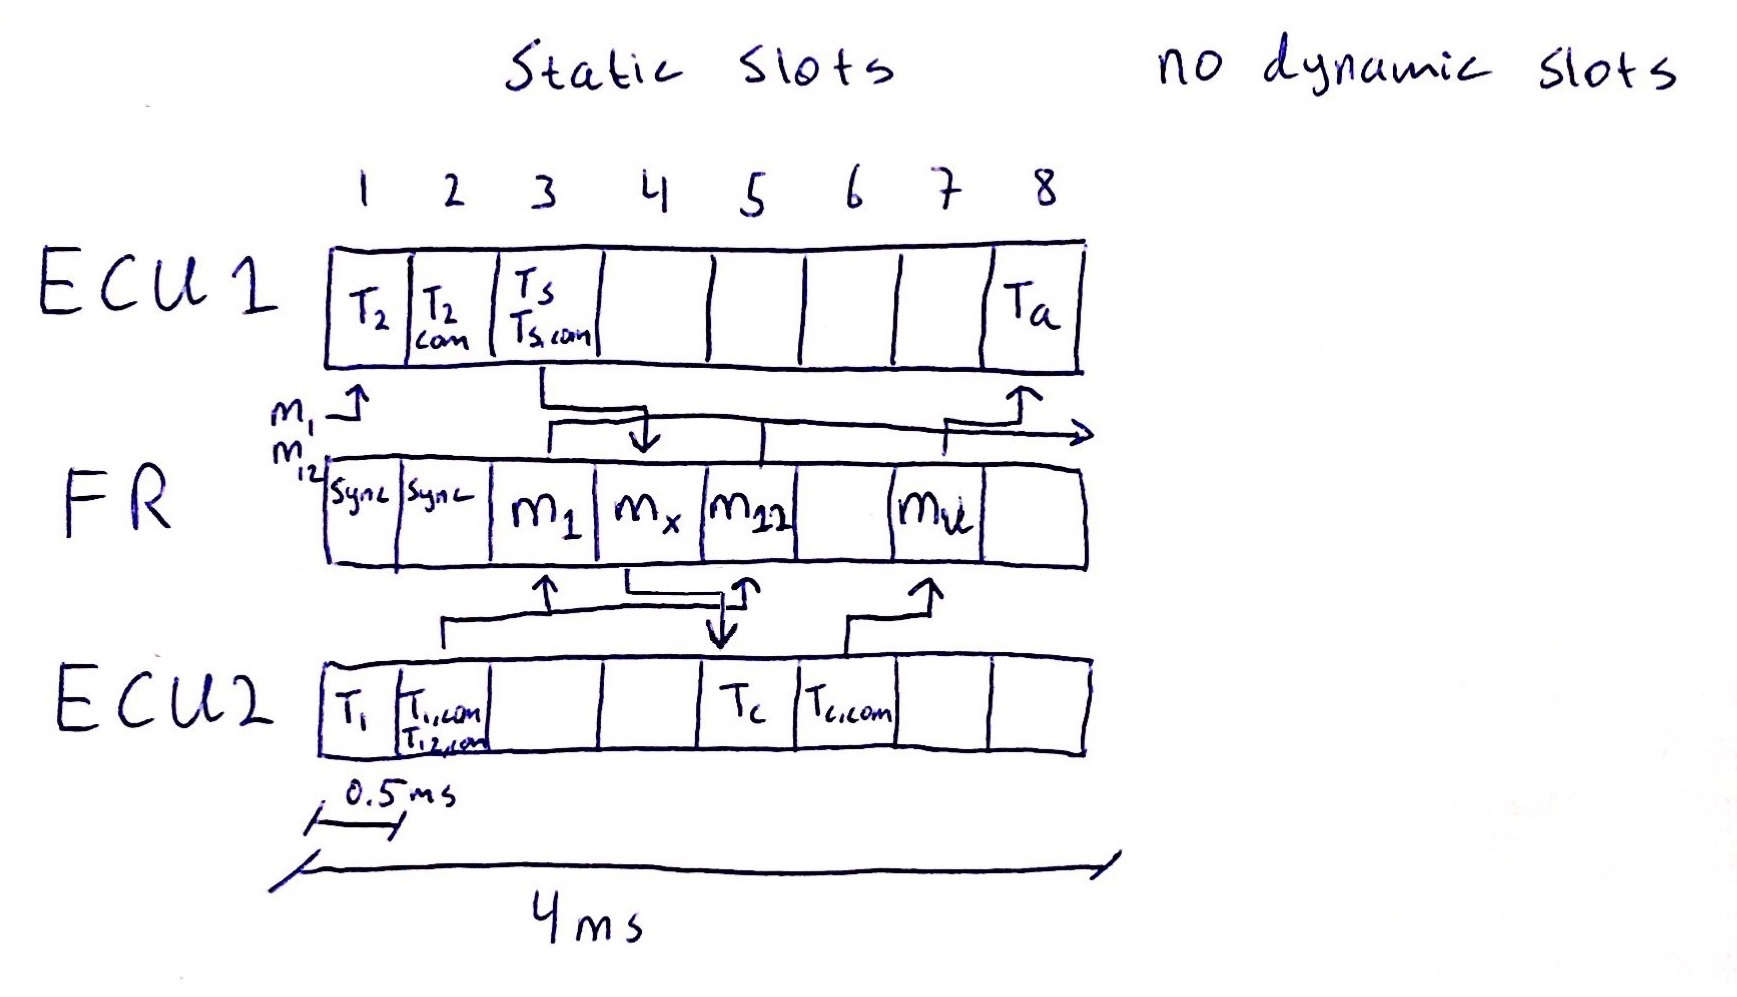 Static slots no dynamic slots
1 2 3 4 5 6 7 8
ECU1 T2 T2 com Ts Ts,com Ta
m1
m12
FR Sync Sync m1 mx m12 mu
ECU2 T1 T1,com T12,com Tc Tc,com
0.5ms
4ms